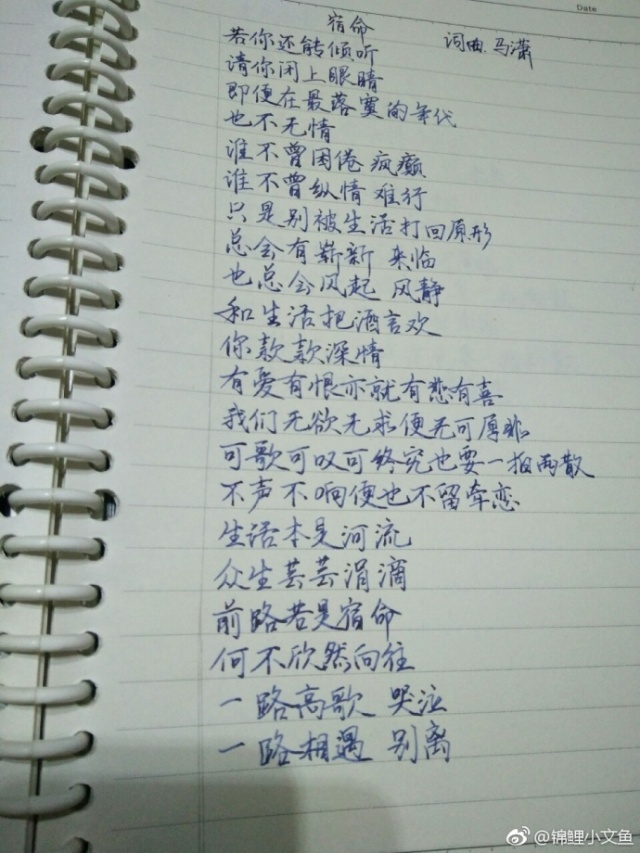 Date
宿命
词曲.马潇
若你还能倾听
请你闭上眼睛
即便在最落寞的年代
也不无情
谁不曾困倦 疯癫
谁不曾纵情 难行
只是别被生活打回原形
总会有崭新 来临
也总会风起 风静
和生活把酒言欢
你款款深情
有爱有恨亦就有悲有喜
我们无欲无求便无可厚非
可歌可叹可终究也要一拍两散
不声不响便也不留牵恋
生活本是河流
众生芸芸涓滴
前路若是宿命
何不欣然向往
一路高歌 哭泣
一路相遇 别离
@锦鲤小文鱼